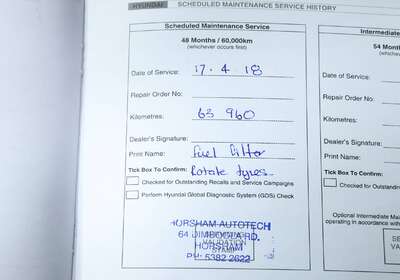 HYUNDAI SCHEDULED MAINTENANCE SERVICE HISTORY
Scheduled Maintenance Service
48 Months / 60,000km
(whichever occurs first)
Date of Service: 17.4.18
Repair Order No:
Kilometres: 63 960
Dealer's Signature:
Print Name: fuel filter
Tick Box To Confirm: Rotate tyres
Checked for Outstanding Recalls and Service Campaigns
Perform Hyundai Global Diagnostic System (GDS) Check
HORSHAM AUTOTECH
64 DIMBOOLA RD.
VALIDATION
HORSHAM
STAMP
PH: 5382 2622
Intermediate
54 Mon
(whichever
Date of Service:
Repair Order No:
Kilometres:
Dealer's Signature:
Print Name:
Tick Box To Confirm:
Checked for Outstanding
Optional Intermediate Main
operating in accordance with
SE
VA